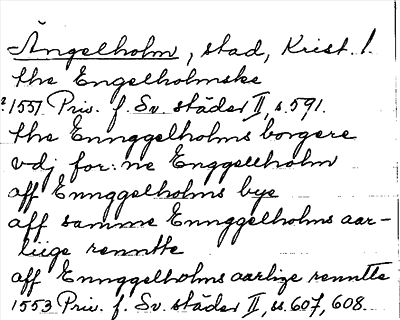 Ängelholm, stad, Krist. l.
the Engelholmske
?1551 Priv. f. Sv. städer II, s. 591.
the Ennggelholms borgere
vdj for:ne Enggellholm
aff Ennggelholms bye
aff samme Ennggelholms aar-
liige renntte
aff Ennggelholms aarlige renntte
1553 Priv. f. Sv. städer II, ss. 607, 608.